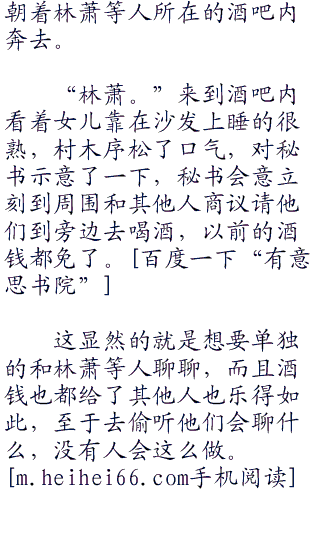 朝着林萧等人所在的酒吧内
奔去。
“林萧。”来到酒吧内
看着女儿靠在沙发上睡的很
熟，村木序松了口气，对秘
书示意了一下，秘书会意立
刻到周围和其他人商议请他
们到旁边去喝酒，以前的酒
钱都免了。[百度一下“有意
思书院”]
这显然的就是想要单独
的和林萧等人聊聊，而且酒
钱也都给了其他人也乐得如
此，至于去偷听他们会聊什
么，没有人会这么做。
[m.heihei66.com手机阅读]